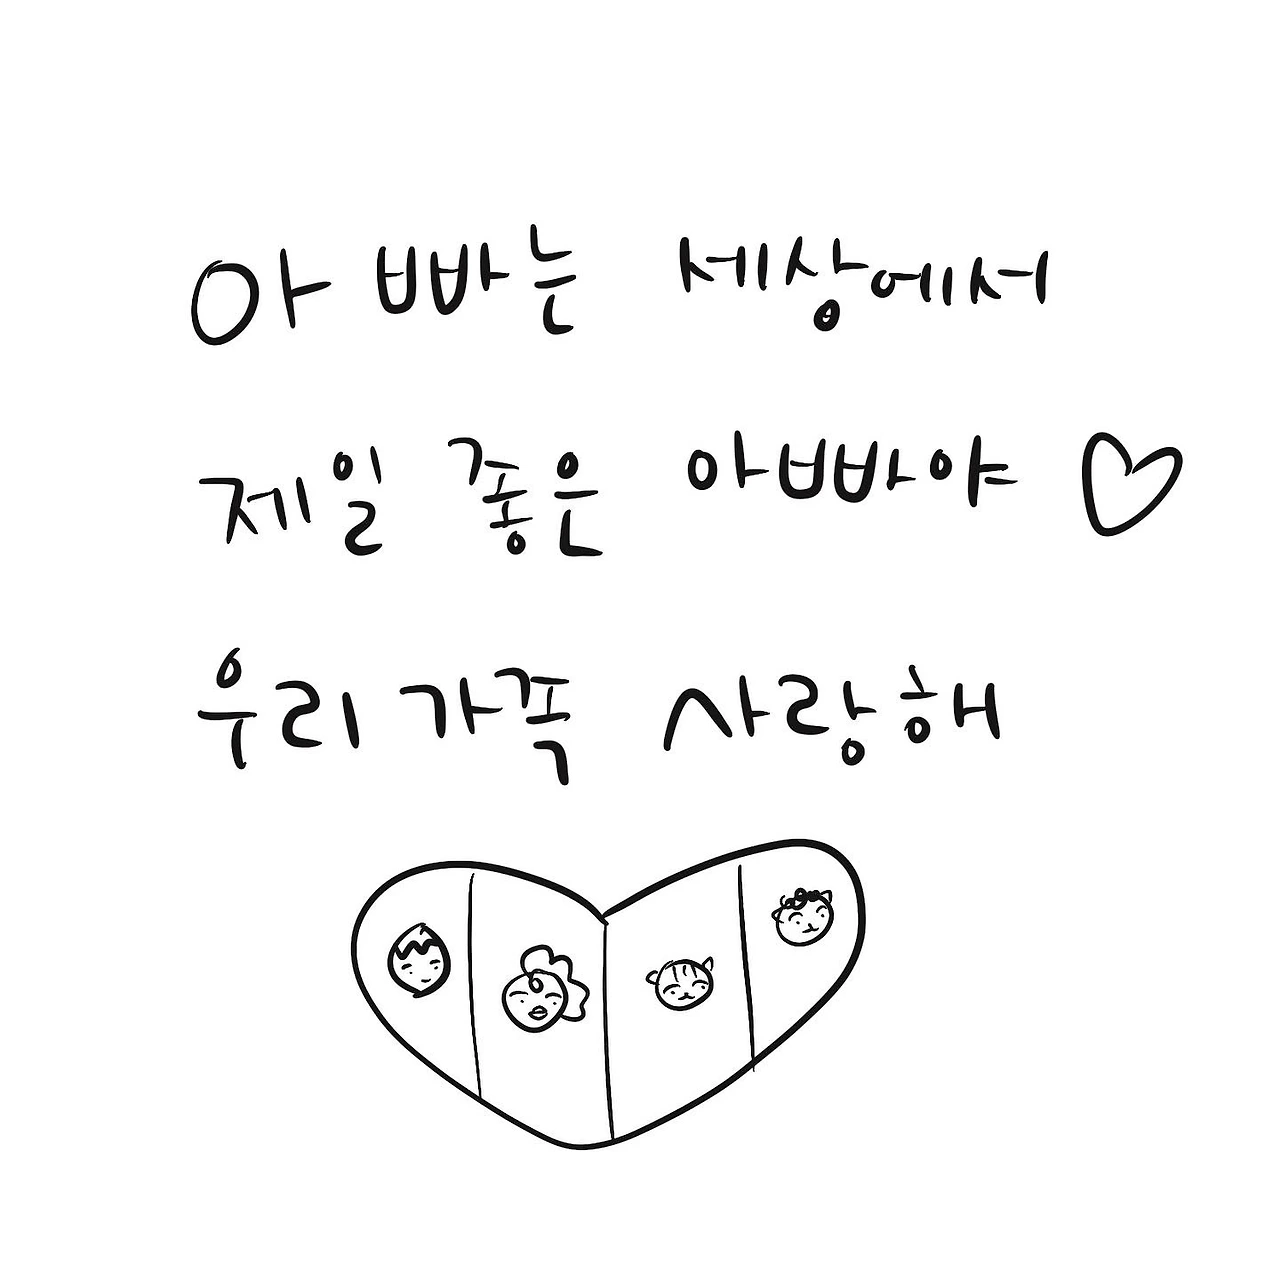 아빠는 세상에서
제일 좋은 아빠야 ♡
우리 가족 사랑해